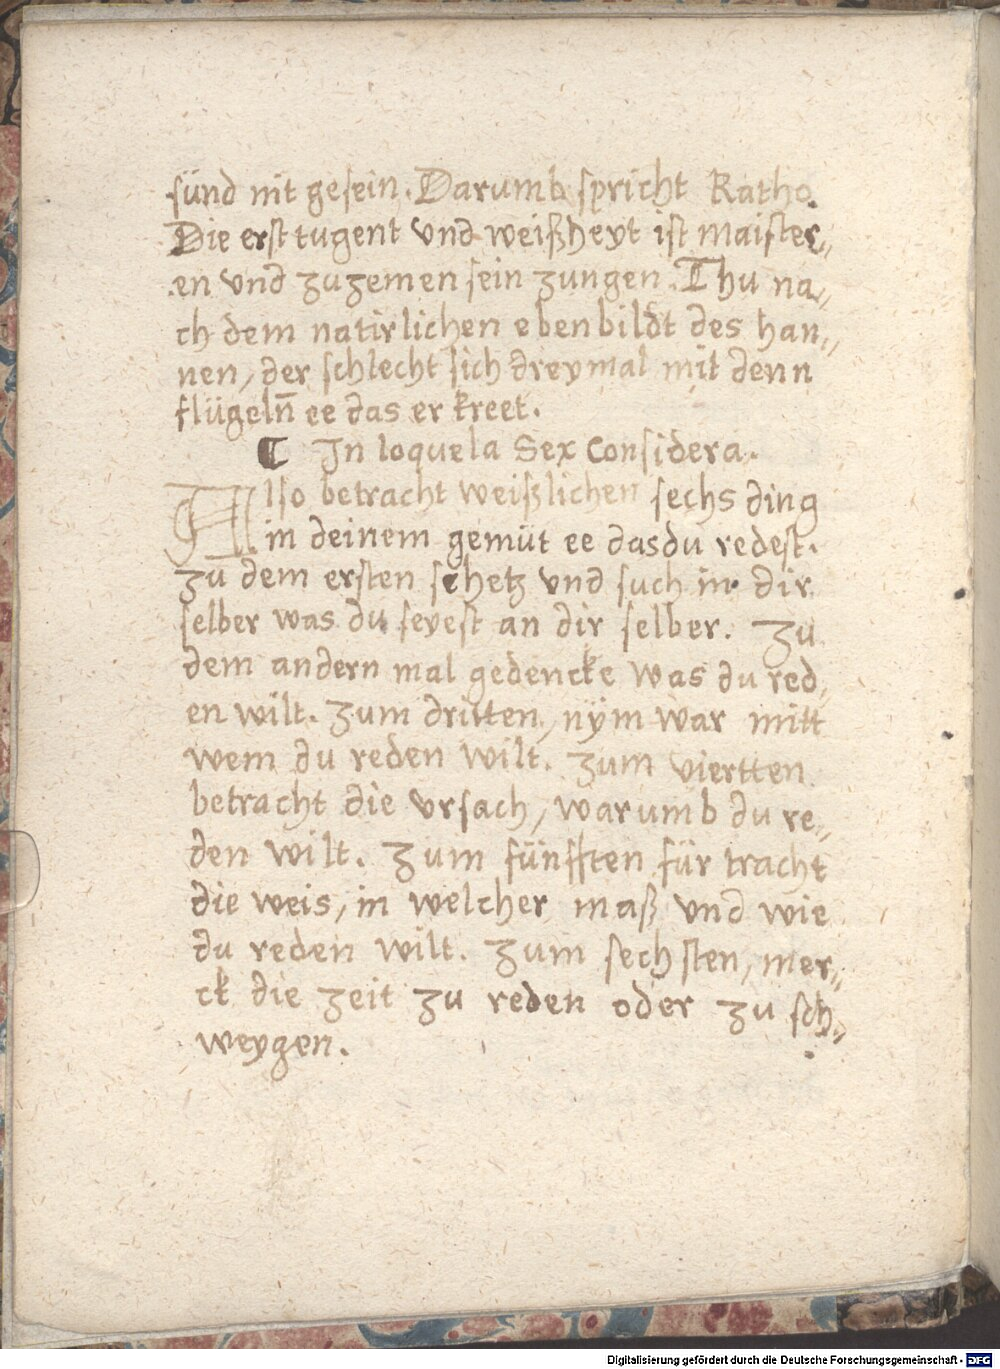 sünd nit gesein. Darumb spricht Katho.
Die erst tugent vnd weißheyt ist maister,,
en vnd zuzemen sein zungen. Thu na,,
ch dem natirlichen ebenbildt des han,,
nen, der schlecht sich dreymal mit denn
flügeln̄ ee das er kreet.
C In loquela Sex Considera.
Also betracht weißlichen sechs ding
in deinem gemüt ee das du redest.
Zu dem ersten schetz vnd such in dir
selber was du seyest an dir selber. Zu
dem andern mal gedencke was du red,
en wilt. Zum dritten, nÿm war mitt
wem du reden wilt. Zum viertten
betracht die vrsach, warumb du re,,
den wilt. Zum fünfften für tracht
die weis, in welcher maß vnd wie
du reden wilt. Zum sechsten, mer,,
ck die zeit zu reden oder zu sch,,
weygen.
Digitalisierung gefördert durch die Deutsche Forschungsgemeinschaft - DFG